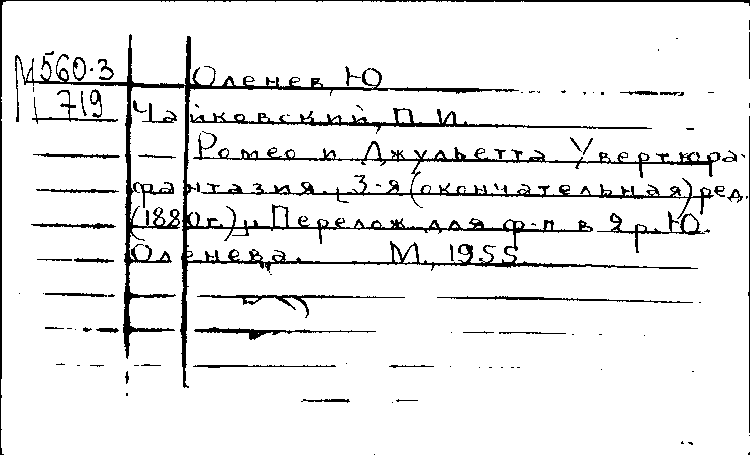 М 560-3 Оленев, Ю
719 Чайковский, П. И.
Ромео и Джульетта. Увертюра-
фантазия. [3-я (окончательная) ред.
(1880 г.)]. Перелож. для ф-п в 2 р. Ю.
Оленева. М., 1955.